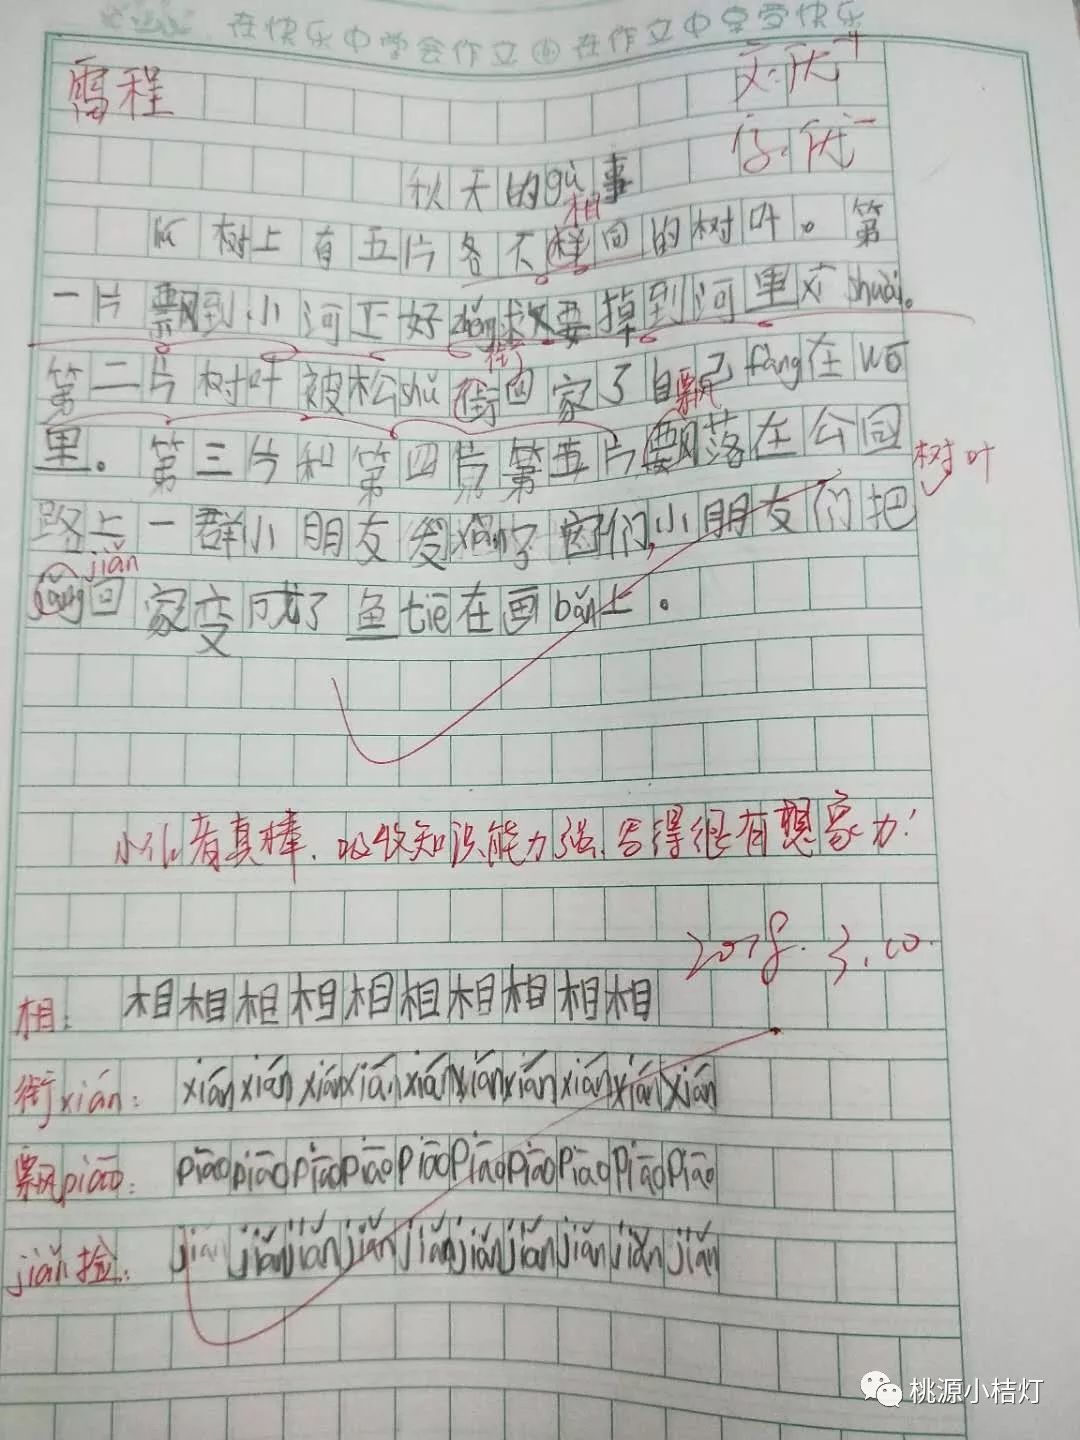 在快乐中学会作文 在作文中享受快乐
雷程
文:优-
字:优-
秋天的gù事
树上有五片各不样同的树叶。第
相
一片飘到小河正好 要掉到河里 shuāi。
衔
第二片树叶被松shǔ街回家了自己fàng在wō
飘
里。第三片和第四片第五片飘落在公园
树叶
路上一群小朋友发xiàn了它们,小朋友们把
jiǎn
回家变成了鱼tiē在画bǎn上。
小作者真棒,吸收知识能力强,写得很有想象力!
2018.3.10.
相: 相相相相相相相相相相
衔xián: xián xián xián xián xián xián xián xián xián xián
飘piāo: piāo piāo piāo piāo piāo piāo piāo piāo piāo piāo
jiǎn捡: jiǎn jiǎn jiǎn jiǎn jiǎn jiǎn jiǎn jiǎn jiǎn jiǎn
桃源小桔灯